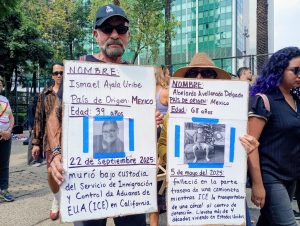 NOMBRE:
Ismael Ayala Uribe
País de Origen: Mexico
Edad: 39 años
22 de Septiembre 2025
murió bajo custodia
del Servicio de Inmigración
y Control de Aduanas de
EUA (ICE) en California
NOMBRE:
Abelardo Avellaneda Delgado
PAÍS DE ORIGEN: MEXICO
Edad: 68 años
5 de mayo 2025
falleció en la parte
trasera de una camioneta
mientras ICE lo transportaba
de una cárcel al centro de
detención. Llevaba más de 4
décadas viviendo en Estados Unidos